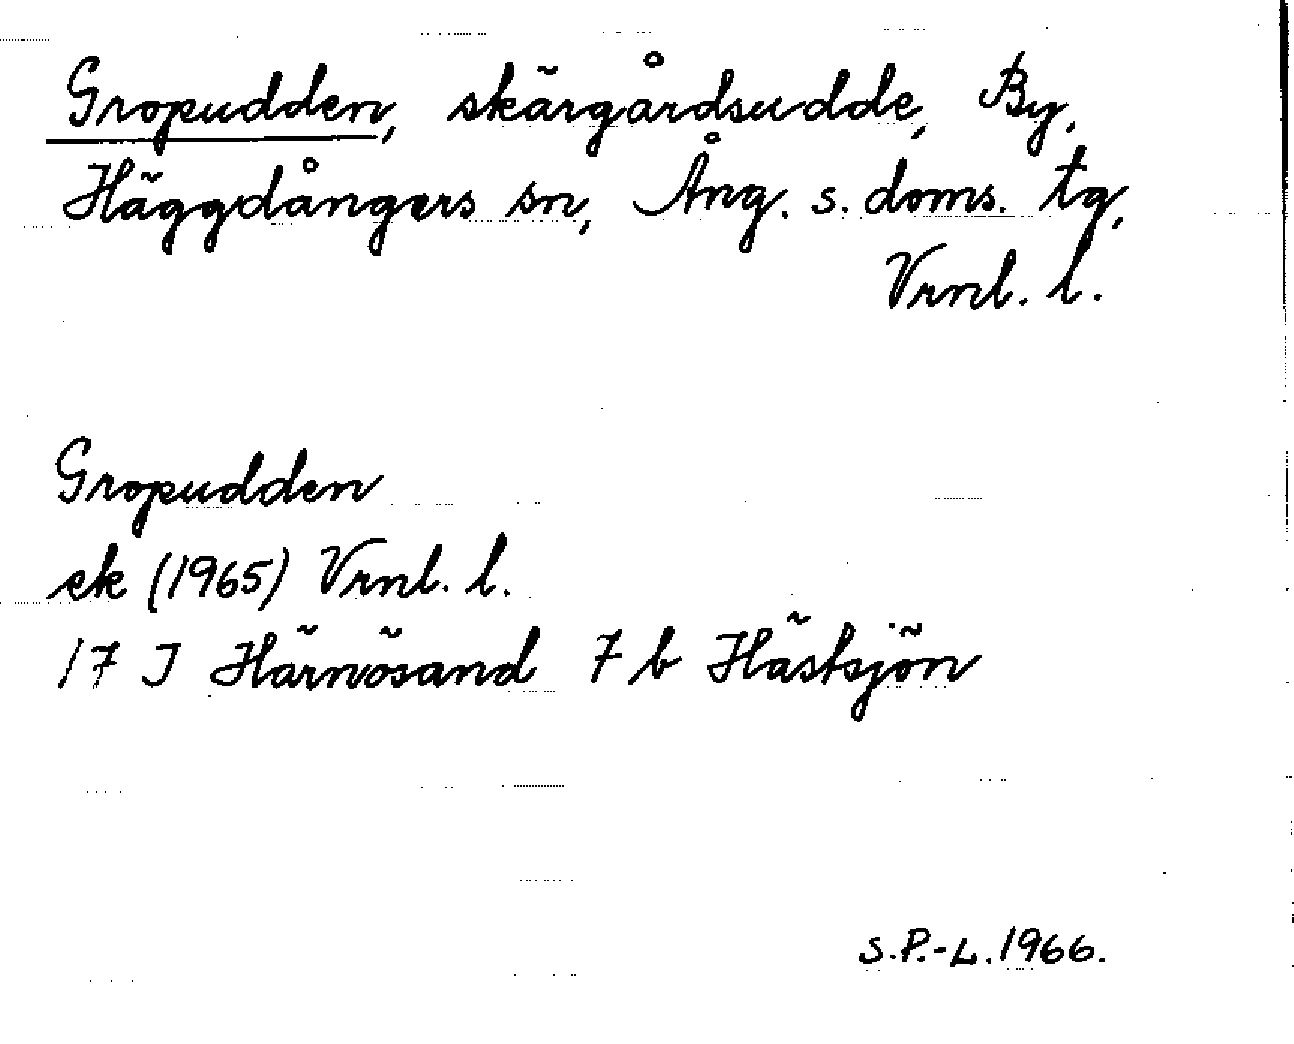 Gropudden, skärgårdsudde, By,
Häggdångers sn, Ång. s. doms. tg,
Vrnl. l.
Gropudden
ek (1965) Vrnl. l.
17 J Härnösand 7 b Hästsjön
S.P.-L. 1966.